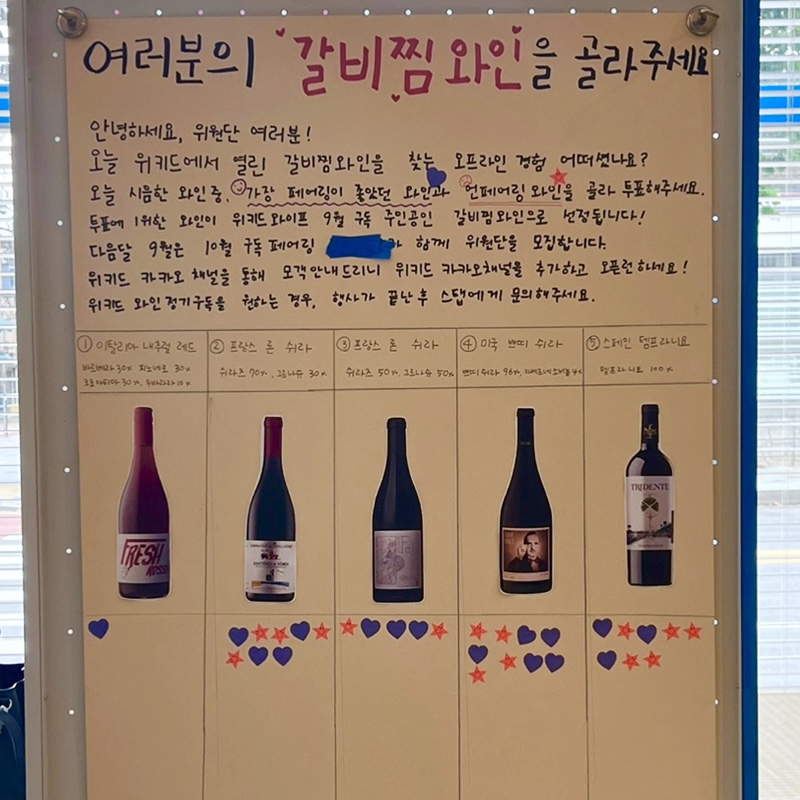 여러분의 갈비찜 와인을 골라주세요
안녕하세요, 위원단 여러분!
오늘 위키드에서 열린 갈비찜와인을 찾는 오프라인 경험 어떠셨나요?
오늘 시음한 와인 중, 가장 페어링이 좋았던 와인과 언페어링 와인을 골라 투표해주세요.
투표에 1위한 와인이 위키드와이프 9월 구독 주인공인 갈비찜와인으로 선정됩니다!
다음달 9월은 10월 구독 페어링 함께 위원단을 모집합니다.
위키드 카카오 채널을 통해 모객안내드리니 위키드 카카오채널을 추가하고 오픈런하세요!
위키드 와인정기구독을 원하는 경우, 행사가 끝난 후 스탭에게 문의해주세요.
① 이탈리아 내추럴 레드
바르베라 30% 피노네로 30%
크로아티나 30%, 우바라라 10%
② 프랑스 론 쉬라
쉬라즈 70%, 그르나슈 30%
③ 프랑스 론 쉬라
쉬라즈 50%, 그르나슈 50%
④ 미국 쁘띠 쉬라
쁘띠쉬라 96%, 까베르네소비뇽 4%
⑤ 스페인 템프라니요
템프라니요 100%
FRESH
ROSSO
TRIDENTE